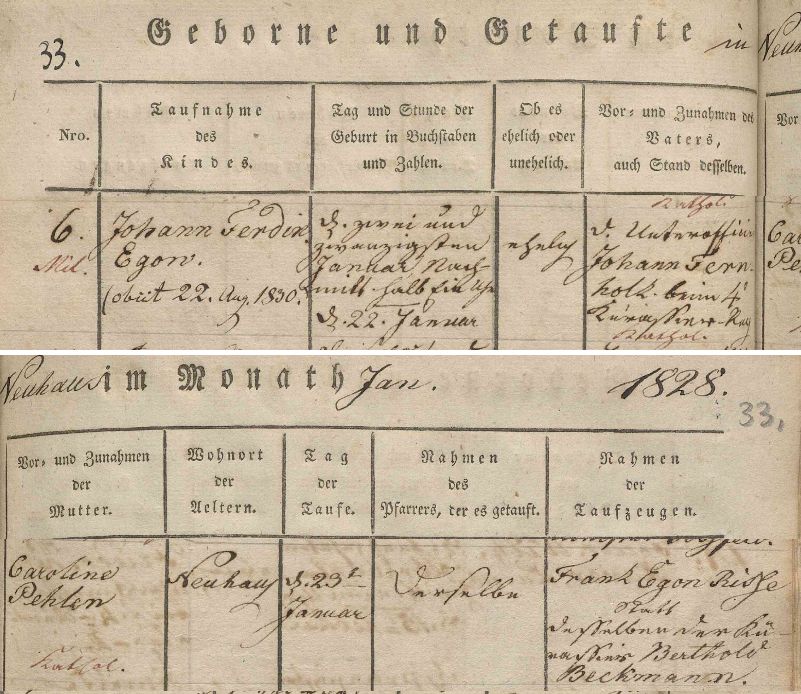 Geborne und Getaufte in Neuh
33.
Nro.
Taufnahme
des
Kindes.
Tag und Stunde der
Geburt in Buchstaben
und Zahlen.
Ob es
ehelich oder
unehelich.
Vor- und Zunahmen des
Vaters,
auch Stand desselben.
Vor
6.
Mil.
Johann Ferdin.
Egon.
(obiit 22. Aug. 1830.
d. zwei und
zwanzigsten
Januar Nach-
mitt. halb Ein Uhr
d. 22. Januar
ehelich
Kathol.
d. Unteroffizier
Johann Fern-
holk beim 4t
Kürassier-Reg
Kathol.
Car
Peh
Neuhaus im Monath Jan. 1828.
33.
Vor- und Zunahmen
der
Mutter.
Wohnort
der
Aeltern.
Tag
der
Taufe.
Nahmen
des
Pfarrers, der es getauft.
Nahmen
der
Taufzeugen.
Caroline
Pehlen
Kathol.
Neuhaus
d. 23t
Januar
Derselbe
Frank Egon Risse
statt
desselben der Kü-
rassier Berthold
Beckmann.